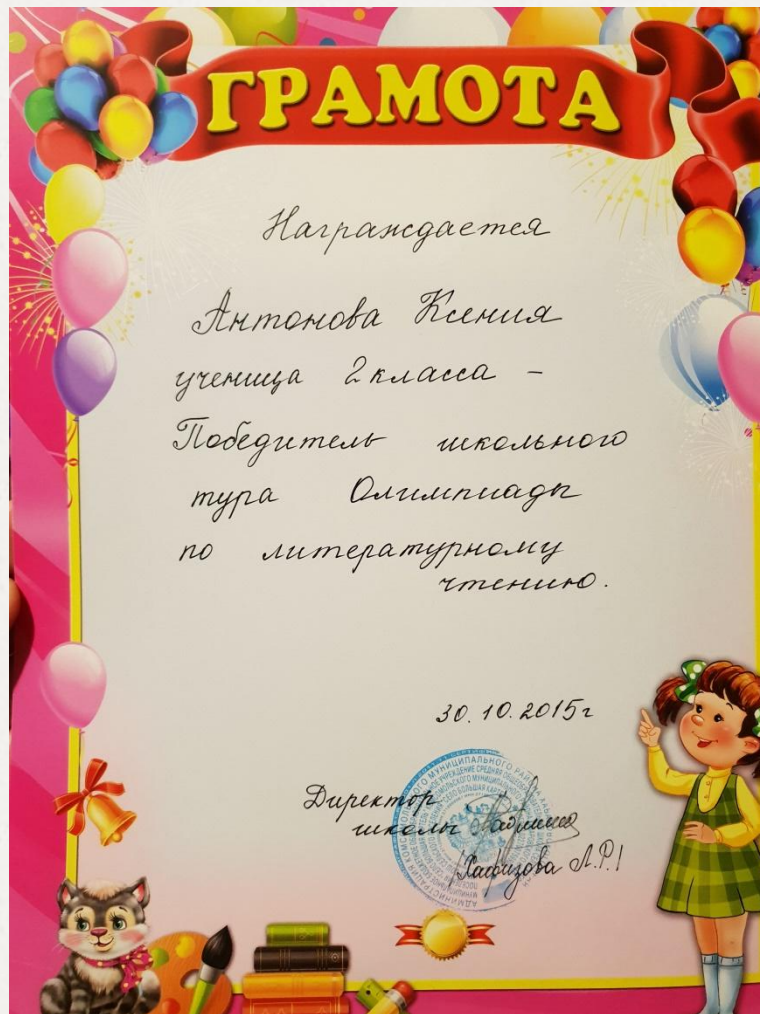 ГРАМОТА
Награждается
Антонова Ксения
ученица 2 класса -
Победитель школьного
тура Олимпиады
по литературному
чтению.
30.10.2015г
Директор
школы
/Хафизова Л.Р./
МУНИЦИПАЛЬНОГО